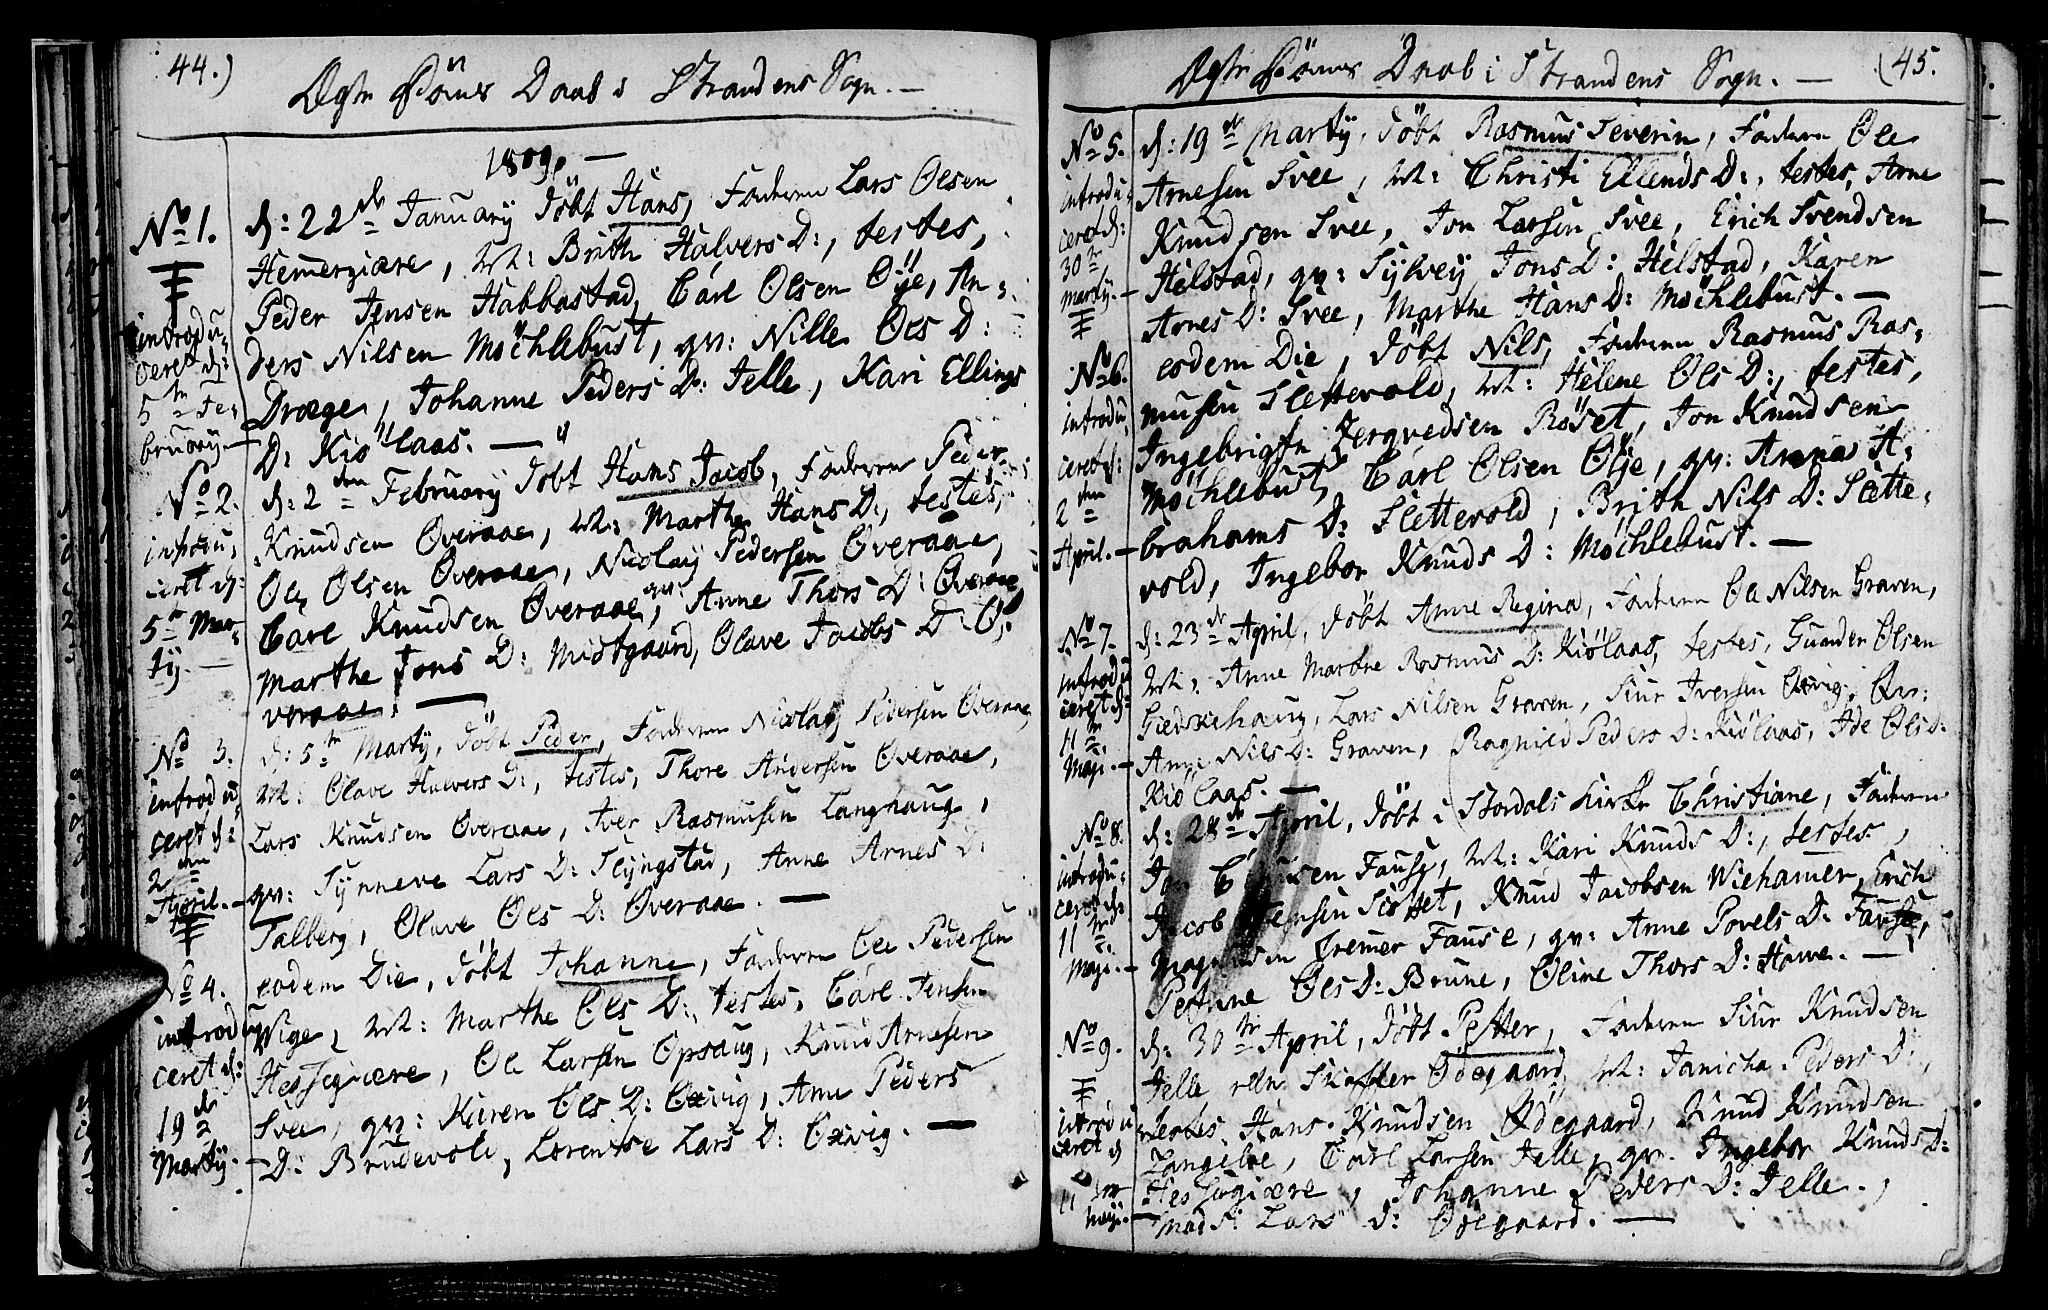 44.)
Ægte Börns Daab i Strandens Sogn. —
1809. —
No 1.
introdu,
ceret d:
5te Fe,
bruary. —
d: 22de January döbt Hans, Faderen Lars Olsen
Hemmergiære, M: Brith Halvers D:, testes,
Peder Jensen Habbastad, Carl Olsen Öÿe, An,
ders Nilsen Möchlebust, qv: Nille Ols D:
Dræge, Johanne Peders D: Velle, Kari Ellings
D: Kiölaas. —
No 2.
introdu,
ceret d:
5te Mar,
tij. —
d: 2den February döbt Hans Jacob, Faderen Peder
Knudsen Överaae, M: Marthe Hans D:, testes,
Ole Olsen Överaae, Nicolay Pedersen Överaae,
Carl Knudsen Överaae, qv: Anne Thors D: Överaae
Marthe Jons D: Midtgaard, Olave Jacobs D: Ö,
veraae. —
No 3.
introdu,
ceret d:
2den
April. —
d: 5te Martij, döbt Peder, Faderen Nicolay Pedersen Överaae,
M: Olave Halvers D:, testes, Thore Andersen Överaae,
Lars Knudsen Överaae, Iver Rasmusen Langhaug,
qv: Synneve Lars D: Slyngstad, Anne Arnes D:
Talberg, Olave Ols D: Överaae. —
No 4.
introdu,
ceret d:
19de
Martij. —
eodem Die, döbt Johanne, Faderen Ole Pedersen
Wige, M: Marthe Ols D:, testes, Carl Jensen
Hessegiære, Ole Larsen Opsaug, Knud Arnesen
Svee, qv: Karen Ols D: Oxvig, Anne Peders
D: Brudevold, Lorentse Lars D: Oxvig. —
(45.
Ægte Börns Daab i Strandens Sogn. —
No 5.
introdu,
ceret d:
30te
Martij. —
d: 19de Martij, döbt Rasmus Severin, Faderen Ole
Arnesen Svee, M: Christi Ellends D:, testes, Arne
Knudsen Svee, Jon Larsen Svee, Erich Svendsen
Helstad, qv: Sylvey Jons D: Helstad, Karen
Arnes D: Svee, Marthe Hans D: Möchlebust. —
No 6.
introdu,
ceret d:
2den
April. —
eodem Die, döbt Nils, Faderen Rasmus Ras,
musen Slettevold, M: Helene Ols D:, testes,
Ingebrigth Jergvedsen Röset, Jon Knudsen
Möchlebust, Carl Olsen Öÿe, qv: Anna A,
brahams D: Slettevold, Brith Nils D: Slette,
vold, Ingebor Knuds D: Möchlebust. —
No 7.
introdu
ceret d:
11te
Maji. —
d: 23de April, döbt Anne Regina, Faderen Ole Nilsen Graven,
M: Anne Marthe Rasmus D: Kiölaas, testes, Gunder Olsen
Giedskehaug, Lars Nilsen Graven, Siur Iversen Oxvig, Qv:
Anne Nils D: Graven, Ragnild Peders D: Kiölaas, Ide Ols D:
Kiölaas. —
No 8.
introdu,
ceret d:
11te
Maji. —
d: 28de April, döbt i Stordals Kirke Christiane, Faderen
Jon sen Fause, M: Kari Knuds D:, testes,
Jacob Jensen Siöset, Knud Jacobsen Wiehamer, Erich
Magnusen Fremer Fause, qv: Anne Povels D: Fause,
Pernne Ols D: Brune, Oline Thors D: Hove. —
No 9.
introdu
ceret d
11te
Maji. —
d: 30te April, döbt Petter, Faderen Siur Knudsen
Velle Ödegaard, M: Janicha Peders D:,
testes, Hans Knudsen Ödegaard, Knud Knudsen
Langeloe, Carl Larsen Velle, qv. Ingebor Knuds D:
Hessegiære, Johanne Peders D: Velle.,
Mads: Lars D: Ödegaard. —